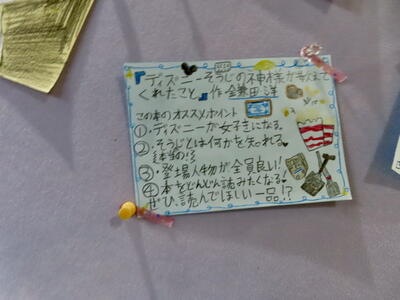 『ディズニーそうじの神様が教えて
くれたこと』作 鎌田 洋
この本のオススメポイント
①・ディズニーが好きになる。
②・そうじとは何かを知れる。
③・登場人物が全員良い!
④本をどんどん読みたくなる!
ぜひ、読んでほしい一品!?